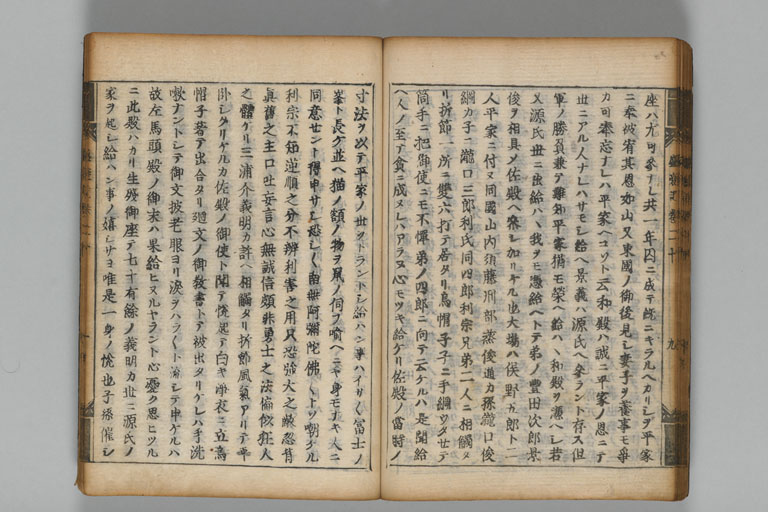 座ハ尤可参ナレ共一年囚ニ成テ既ニキラルヘカリシヲ平家
ニ奉被宥其恩如山又東國ノ御後見シ妻子ヲ養事モ爭
カ可奉忘ナレハ平家ヘコソト云和殿ハ誠ニ平家ノ恩ニテ
世ニアル人ナレハサモシ給ヘ景義ハ源氏ヘ参ラント存ス但
軍ノ勝負兼テ難知平家猶モ榮ヘ給ハヽ和殿ヲ憑ヘシ若
又源氏世ニ出給ハヽ我ヲモ憑給ヘトテ弟ノ豊田次郎景
俊ヲ相具メ佐殿ヘ参シ加リケル也大場ハ俣野五郎ト二
人平家ニ付ヌ同國山内須藤刑部丞俊通カ孫瀧口俊
綱カ子ニ瀧口三郎利氏同四郎利宗兄弟二人ニ相觸タ
リ折節一所ニ雙六打テ居タリ烏帽子子ニ手綱ウタせテ
筒手ニ把御使ニモ不憚弟ノ四郎ニ向テ云ケルハ是聞給
ヘ人ノ至テ貧ニ成ヌレハアラヌ心モツキ給ケリ佐殿ノ當時ノ
寸法ヲ以テ平家ノ世ヲトラントシ給ハン事ハイサ〱冨士ノ
峯ト長ケ並ヘ猫ノ額ノ物ヲ鼠ノ伺フ喩ヘニヤ身モナキ人ニ
同意せント得申サシ恐シ〱南無阿彌陀佛〱トソ嘲ケル
利宗不知逆順之分不辨利害之用只恐強大之敵忽背
眞舊之主口吐妄言心無誠信頗非勇士之法偏似狂人
之體ケリ三浦介義明カ許ヘ相觸タリ折節風氣アリテ平
臥シタリケルカ佐殿ノ御使ト聞テ怱起テ白キ浄衣ニ立烏
帽子著テ出合タリ廻文ノ御教書トテ被出タリケレハ手洗
嗽ナントシテ御文披老眼ヨリ涙ヲハラ〱ト流シテ申ケルハ
故左馬頭殿ノ御末ハ果給ヒヌルヤラント心憂ク思ヒツル
ニ此殿ハカリ生残御座テ七十有餘ノ義明カ世ニ源氏ノ
家ヲ起シ給ハン事ノ嬉シサヨ唯是一身ノ悦也子孫催シ